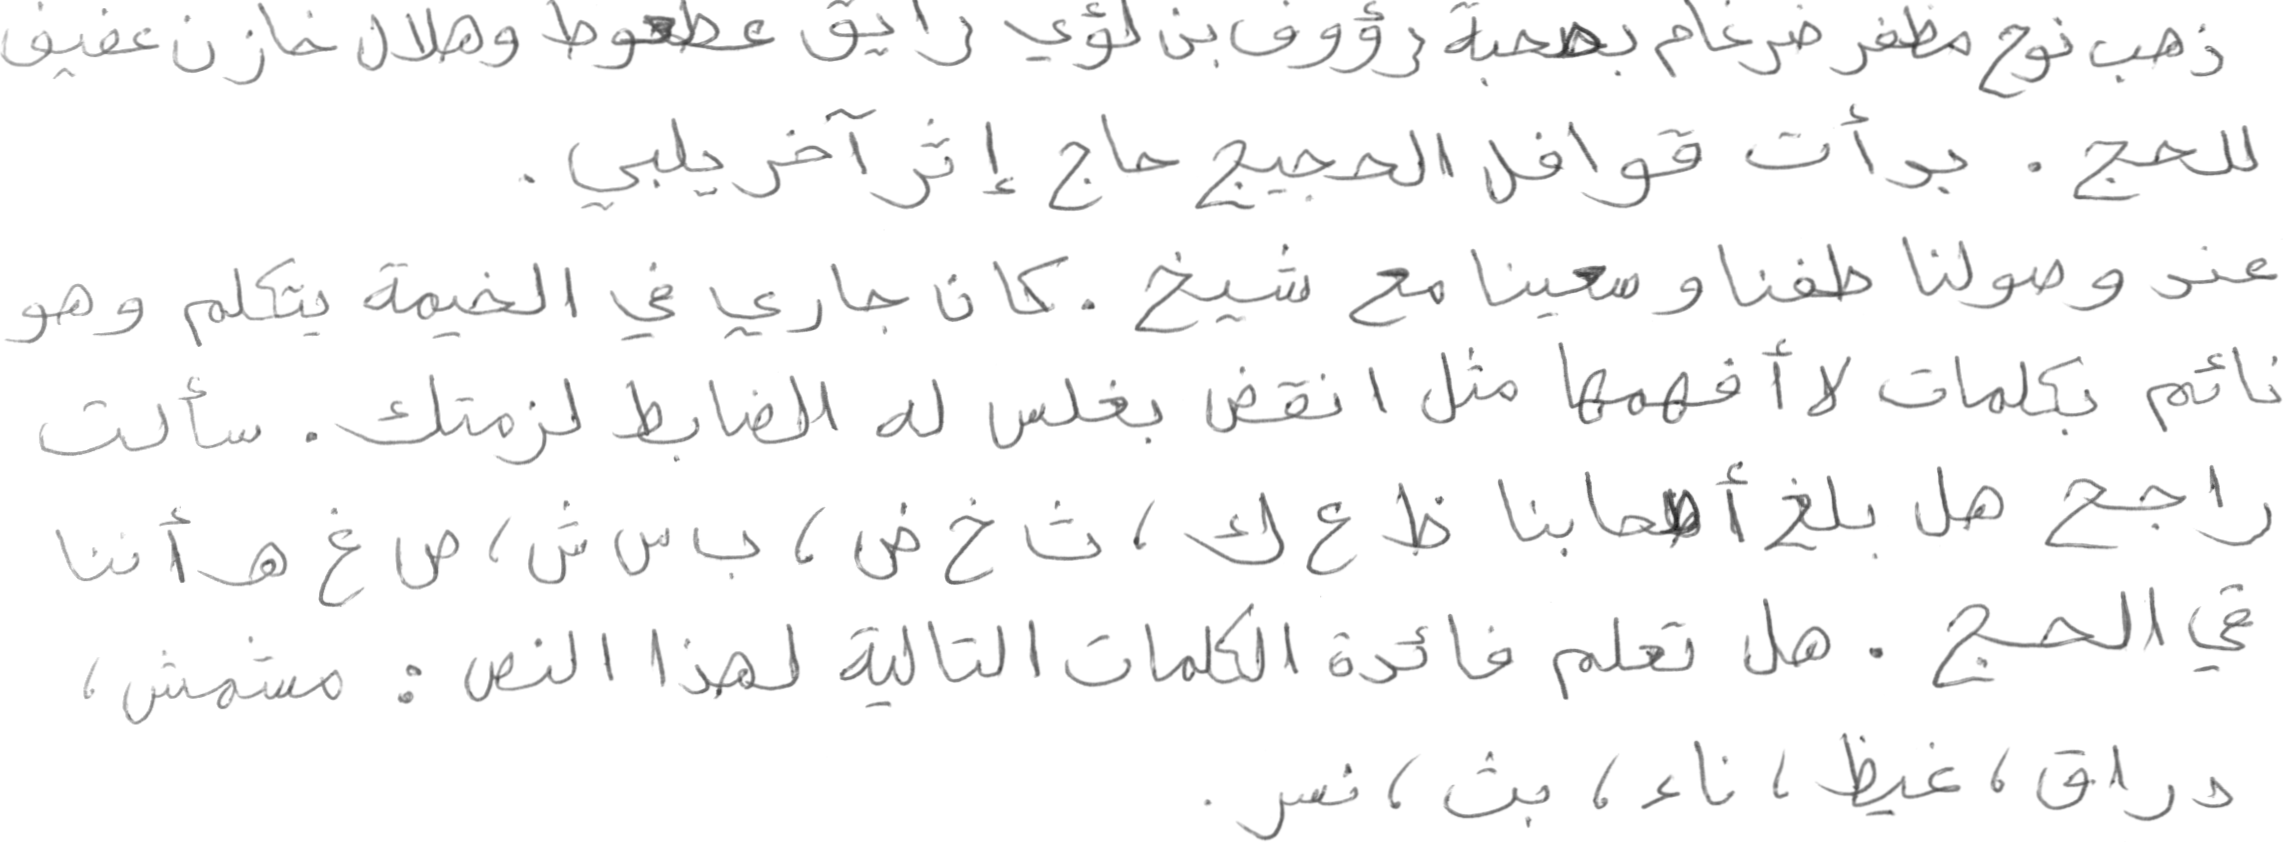 ذهب نوح مظفر ضرغام بصحبة رؤوف بن لؤي رايق عطعوط وهلال خازن عفيف
للحج . بدأت قوافل الحجيج حاج إثر آخر يلبي .
عند وصولنا طفنا وسعينا مع شيخ . كان جاري في الخيمة يتكلم وهو
نائم بكلمات لا أفهمها مثل انقض بغلس له الضابط لزمتك . سألت
راجح هل بلغ أصحابنا ظ ع ك ، ث خ ض ، ب س ش ، ص غ هـ أننا
في الحج . هل تعلم فائدة الكلمات التالية لهذا النص : مشمش ،
دراق ، غيظ ، ناء ، بث ، نسر .